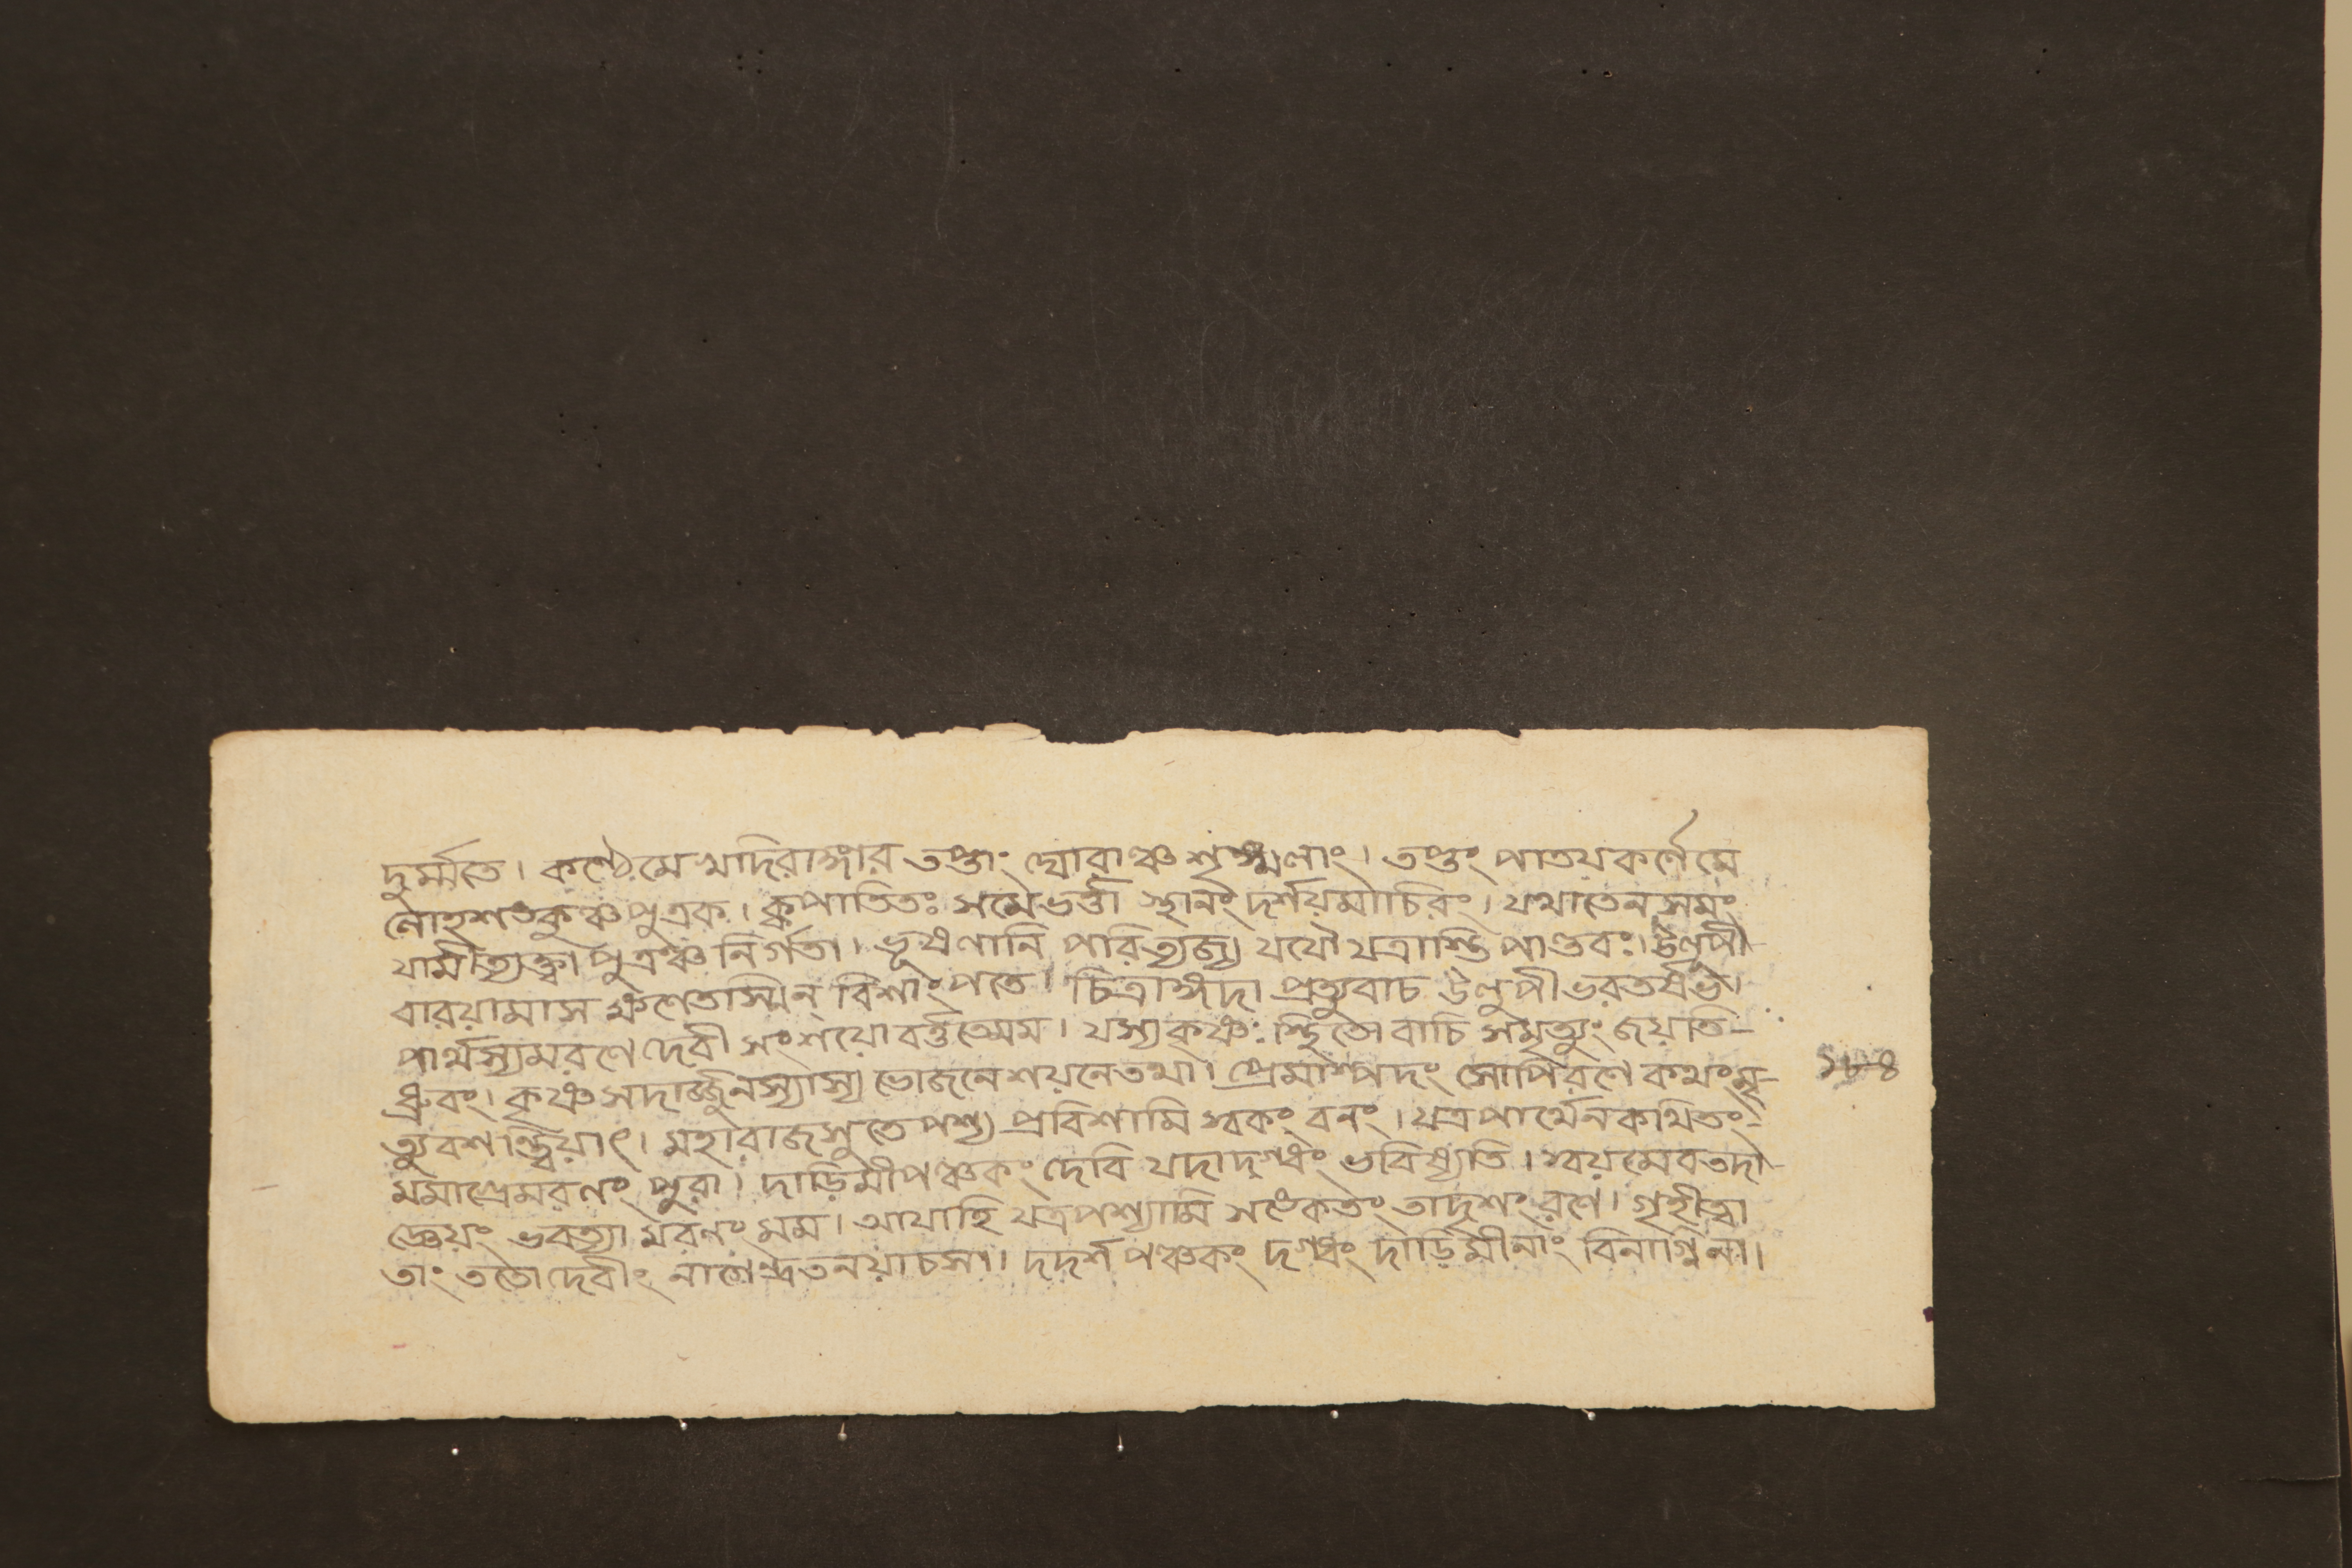 দুর্ম্মতে। কণ্ঠেমে খাদিরাঙ্গার তপ্তাং ঘোরাঞ্চ শৃঙ্খলাং। তপ্তং পাতয় কর্ণে মে
নোহশতকুঞ্চপুত্রক। ক্বপাতিতঃ সমেভর্ত্তা স্থানং দর্শয়মাচিরং। যথাতেন সমং
যামীত্যুক্ত্বা পুত্রঞ্চ নির্গতা। ভূষণানি পরিত্যজ্য যযৌ যত্রাস্তি পাণ্ডবঃ। উলুপী
বারয়ামাস ক্ষণেতাস্মিন্ বিশাংপতে। চিত্রাঙ্গদা প্রত্যুবাচ উলুপী ভরতর্ষভ।
পার্থস্যমরণে দেবী সংশয়ো বর্ত্ততেমম। যস্যকৃষ্ণঃ স্থিতো বাচি সমৃত্যুং জয়তি
ধ্রুবং। কৃষ্ণ সদার্জ্জুনস্যাস্য ভোজনে শয়নেতথা। প্রেমাস্পদং সোপিরণে কথং মৃ-
ত্যুবশন্ত্বিয়াৎ। মহারাজসুতে পশ্য প্রবিশামি স্বকং বনং। যত্রপার্থেন কথিতং
মমাগ্রেমরণং পুরা। দাড়িমীপঞ্চকং দেবি যদাদগ্ধং ভবিষ্যতি। স্বয়মেবতদা
জ্ঞেয়ং ভবত্যা মরণং মম। আযাহি যত্রপশ্যামি সঙ্কেতং তাদৃশং রণে। গৃহীত্বা
তাং ততোদেবীং নাগেন্দ্রতনয়াচসা। দদর্শ পঞ্চকং দগ্ধং দাড়িমীনাং বিনাগ্নিনা।
১৮৪